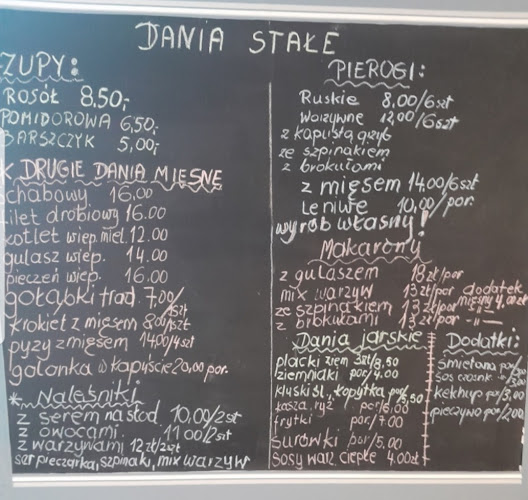 DANIA STAŁE
ZUPY:
ROSÓŁ 8.50,-
POMIDOROWA 6,50,-
BARSZCZYK 5,00,-
DRUGIE DANIA MIĘSNE
schabowy 16.00
filet drobiowy 16.00
kotlet wiep. miel. 12.00
gulasz wiep. 14.00
pieczeń wiep. 16.00
gołąbki trad. 7,00/1szt
krokiet z mięsem 8,00/1szt
pyzy z mięsem 14,00/4szt
golonka w kapyście 20,00 por.
* Naleśniki
z serem na słod 10,00/2szt
z owocami 11,00/2szt
z warzywami 12zł/2szt
ser pieczarka, szpinak, mix warzyw
PIEROGI:
Ruskie 8,00/6szt
Warzywne 12,00/6szt
z kapustą grzyb
ze szpinakiem
z brokułami
z mięsem 14,00/6szt
Leniwe 10,00/por.
wyrób własny!
Makarony
z gulaszem 18zł/por
mix warzyw 13zł/por dodatek
ze szpinakiem 13zł/por mięsny
z brokułami 13zł/por -||-
Dania jarskie
placki ziem 3szt/8,50
ziemniaki por/4,00
kluski śl., kopytka por/5,50
kasza, ryż por/6,00
frytki por/7,00
surówki por/5,00
sosy warz. ciepłe 4.00zł
Dodatki:
śmietana por/
sos czosnk
kekhup por/3,00
pieczywo por/2,00